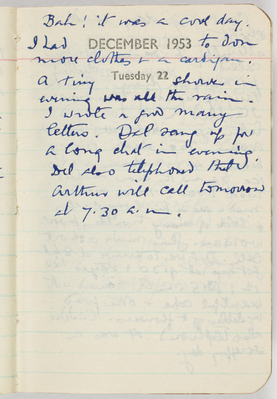 Bah! it was a cool day.
I had to don
DECEMBER 1953
more clothes & a cardigan.
Tuesday 22
A tiny shower in
evening was all the rain.
I wrote a good many
letters. Del rang up for
a long chat in evening.
Del also telephoned that
Arthur will call tomorrow
at 7.30 a.m.